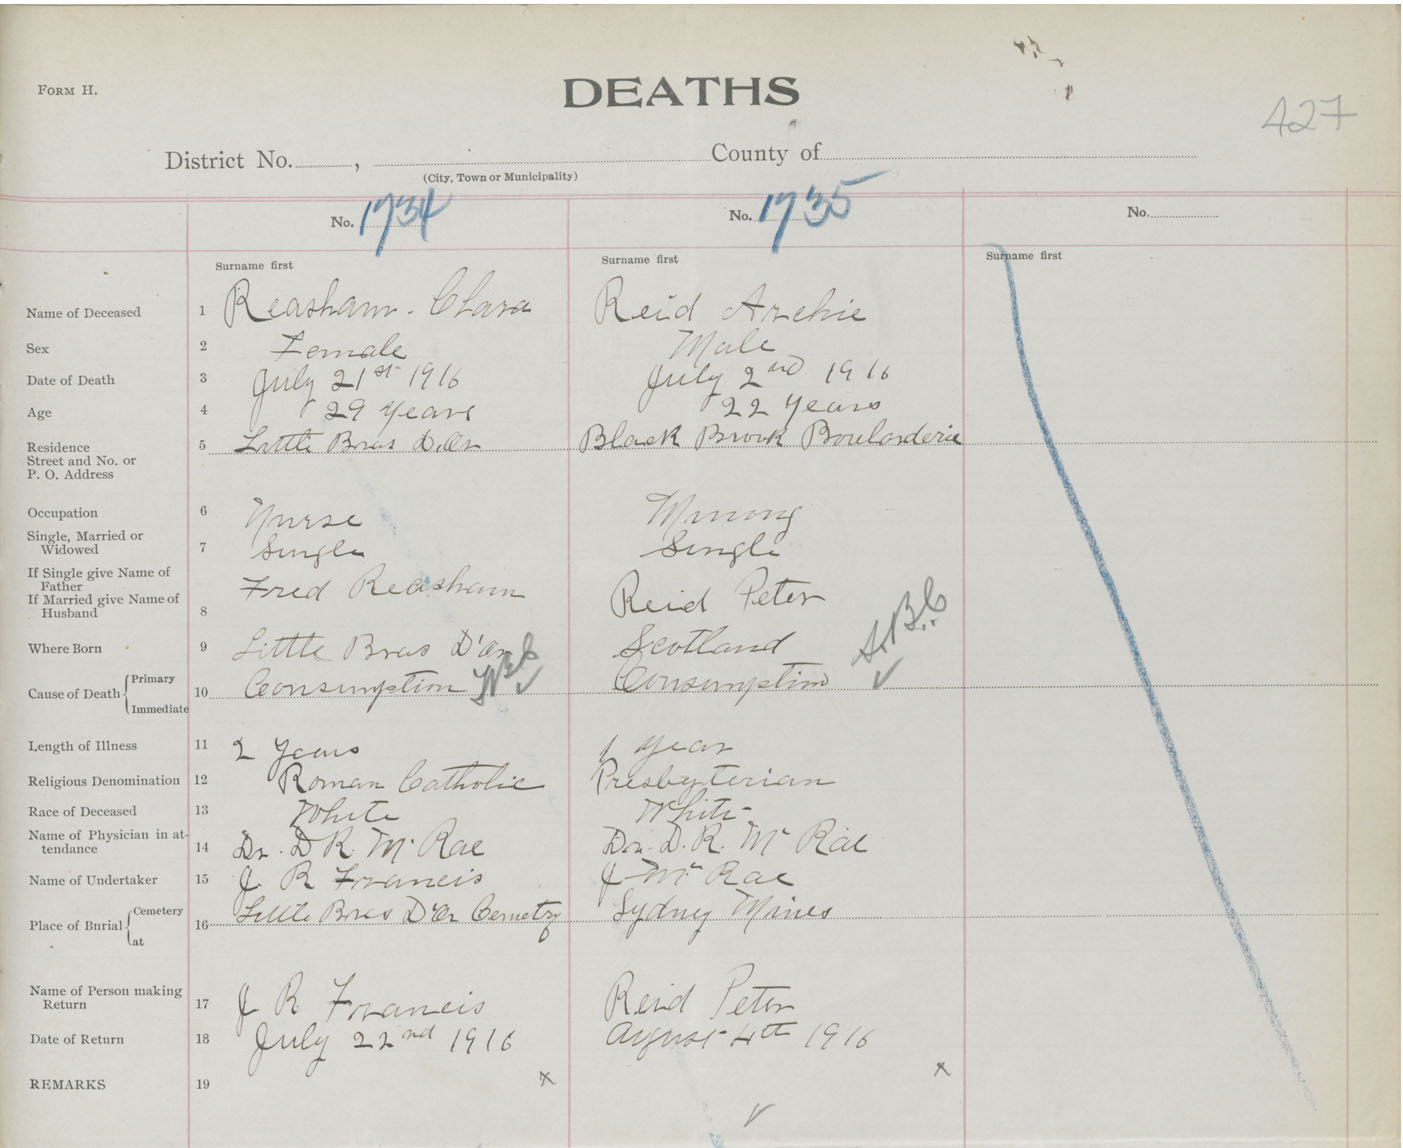 FORM H.
DEATHS
427
District No. , County of
(City, Town or Municipality)
No. 1734 No. 1735 No.
Surname first Surname first Surname first
Name of Deceased 1 Reasham. Clara Reid Archie
Sex 2 Female Male
Date of Death 3 July 21st 1916 July 2nd 1916
Age 4 29 Years 22 Years
Residence 5 Little Bras D'Or Black Brook Boularderie
Street and No. or
P. O. Address
Occupation 6 Nurse Mining
Single, Married or
Widowed 7 Single Single
If Single give Name of
Father
If Married give Name of
Husband 8 Fred Reasham Reid Peter
Where Born 9 Little Bras D'Or Scotland
Cause of Death Primary 10 Consumption Consumption
Immediate
Length of Illness 11 2 Years 1 Year
Religious Denomination 12 Roman Catholic Presbyterian
Race of Deceased 13 White White
Name of Physician in at-
tendance 14 Dr. D R McRae Dr. D. R. McRae
Name of Undertaker 15 J R Francis J McRae
Place of Bnrial Cemetery 16 Little Bras D'Or Cemetry Sydney Mines
at
Name of Person making
Return 17 J R Francis Reid Peter
Date of Return 18 July 22nd 1916 August 4th 1916
REMARKS 19 x x